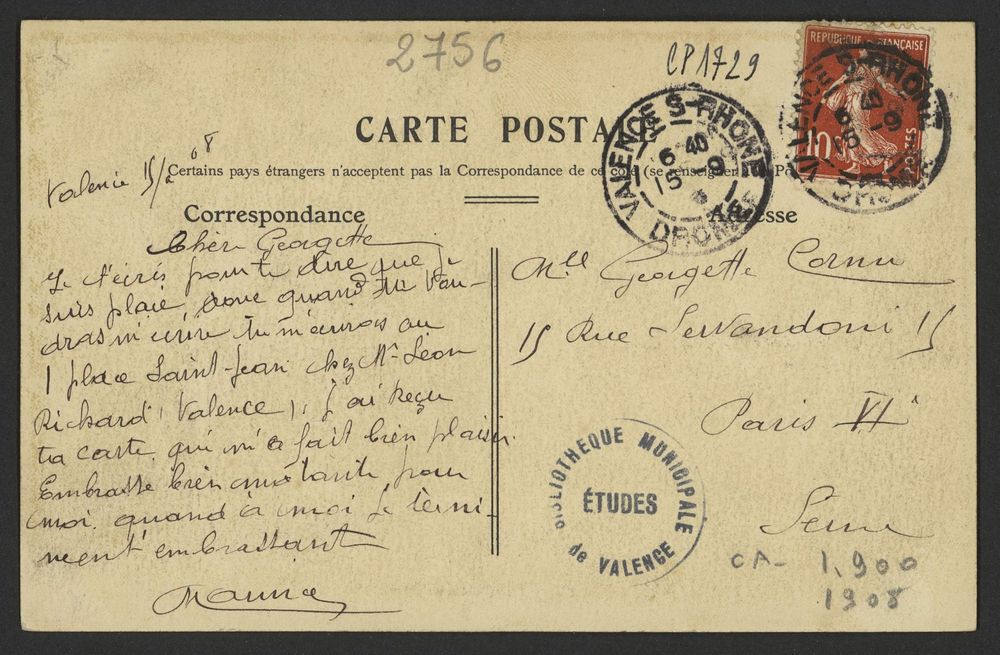 2756
CP1729
RÉPUBLIQUE FRANÇAISE
10
CARTE POSTALE
VALENCE S-RHONE
DROME
Valence 15/2 08
Certains pays étrangers n'acceptent pas la Correspondance de ce côté (se renseigner
Correspondance
Adresse
Chère Georgette
Je t'écris pour te dire que je
suis placé, donc quand tu vou-
dras m'écrire tu m'écriras au
1 place Saint-Jean chez Mr Léon
Richard, Valence), j'ai reçu
ta carte qui m'a fait bien plaisir.
Embrasse bien ma tante pour
moi. quand à moi je termi-
n'ent embrassant
Mlle Georgette Cornu
15 Rue Servandoni 15
Paris VI
Seine
BIBLIOTHEQUE MUNICIPALE
ÉTUDES
de VALENCE
CA- 1,900
1908